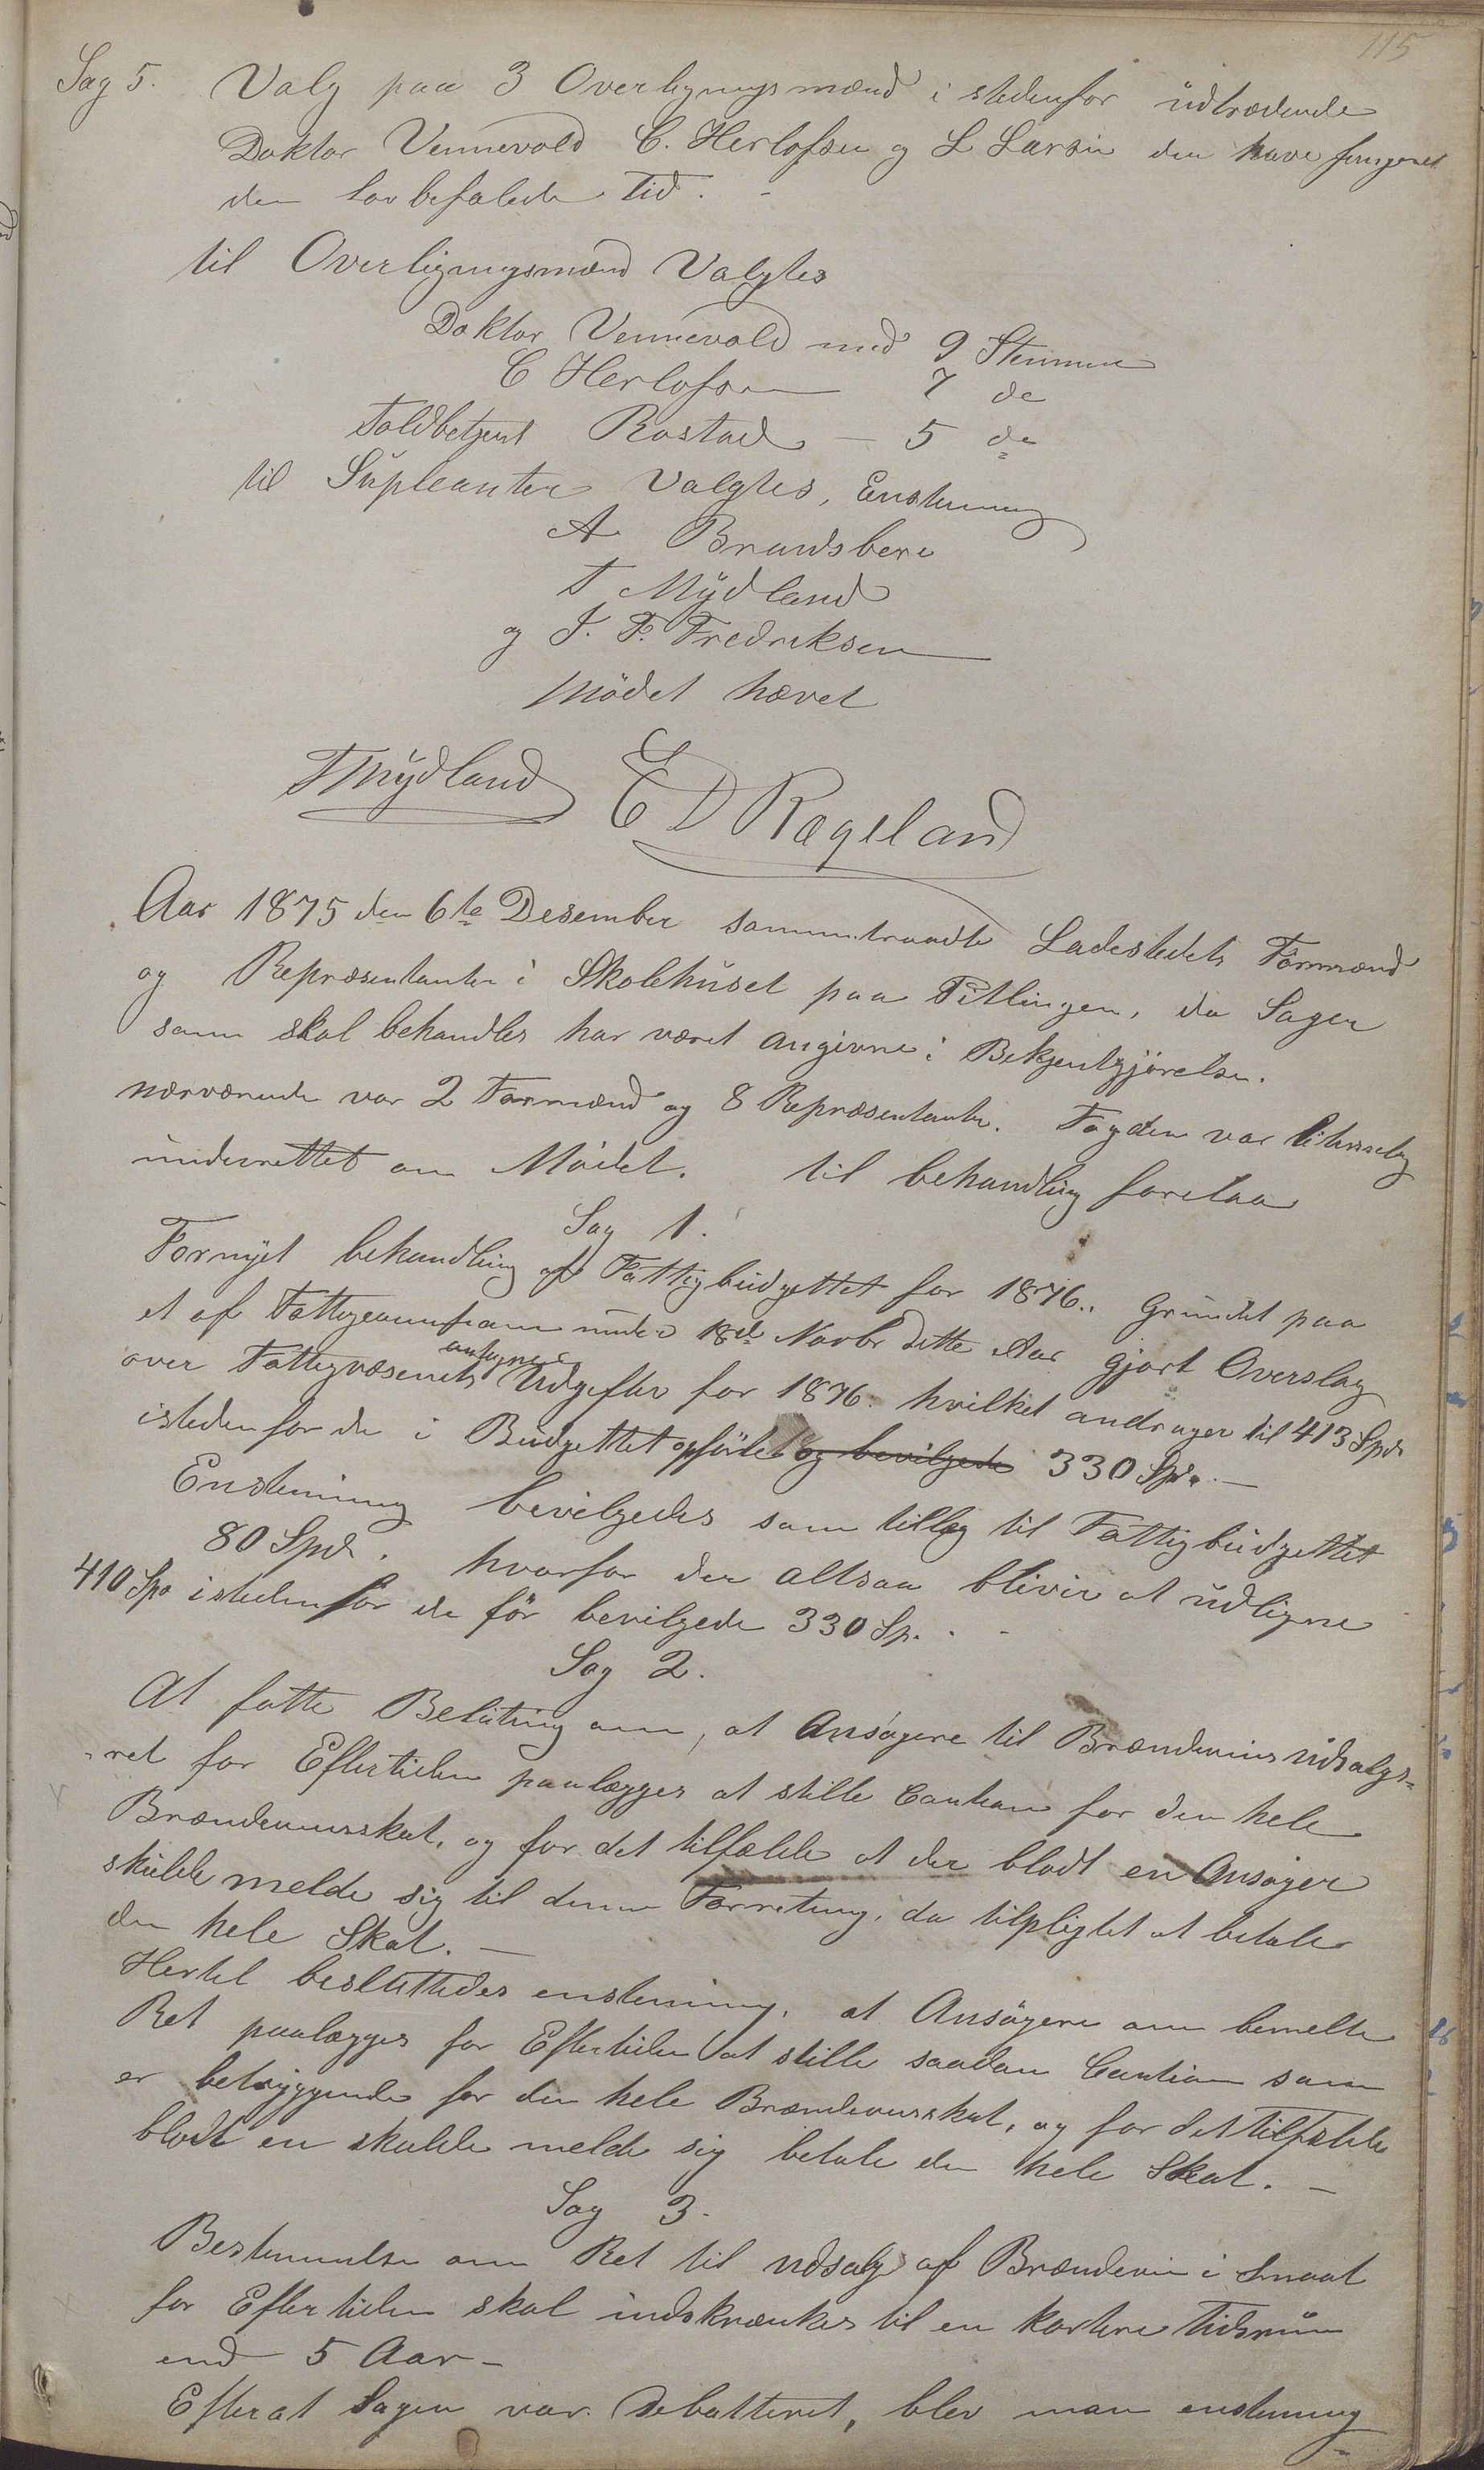 115
Sag 5. Valg paa 3 Overligningsmænd i stedenfor üdtrædende
Doktor Vennevold C. Herlofsen og L Larsen der have fungeret
den lovbefalede Tid. -
til Overligningsmænd Valgtes
Doktor Vennevold med 9 Stemmer
C Herlofsen 7 do
Toldbetjent Rostad - 5 do
til Süpleanter Valgtes, Enstemmig
A. Brandsberg
T Mÿdland
og J. F. Fredriksen
Mödet hævet
TMÿdland E D Rægeland
Aar 1875 den 6te Desember sammentraadte Ladestedets Formænd
og Repræsentanter i Skolehüset paa Fitlingen, de Sager
som skal behandles har været angivne i Bekjentgjörelsen.
nærværende var 2 Formænd og 8 Repræsentanter. Fogden var
ünderrettet om Mödet. til behandling foretaes
Sag 1.
Fornÿet behandling af Fattigbüdgettet for 1876. Gründet paa
et af Fattigcommissionen ünder 18de Novbr dette Aar gjort Overslag
over Fattigvæsenets Udgifter for 1876. hvilket andrager til 413 Spd
istedenfor de i Büdgettet opförte og bevilgede 330 Spd. -
Enstemmig bevilgedes som tillæg til Fattigbüdgettet
80 Spd. hvorfor der altsaa bliver at üdligne
410 Spd istedenfor de för bevilgede 330 Sp. -
Sag 2.
At fatte Beslütning om, at Ansögere til Brændeviinsüdsalgs-
ret for Eftertiden paalægges at stille Caution for den hele
Brændeviinsskat, og for det tilfælde at der blodt en Ansöger
skülde melde sig til denne Forretning, da tilpligtet at betale
den hele Skat. -
Hertil beslüttedes enstemmig, at Ansögere om bemelte
Ret paalægges for Eftertiden at stille saadan Caution som
er betryggende for den hele Brændevinsskat, og for det tilfælde
blodt en skulde melde sig betale den hele Skat. -
Sag 3.
Bestemmelse om Ret til udsalg af Brændeviin i Smaat
for Eftertiden skal indskrænkes til en kortere Tidsrüm
end 5 Aar -
Efterat Sagen var debatteret, blev man enstemmig